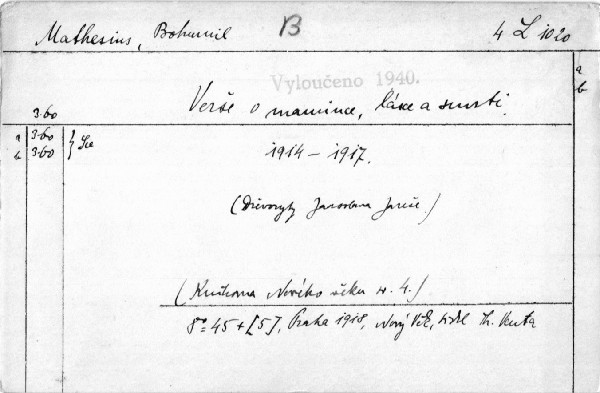 Mathesius, Bohumil B 4 L 1020
Vyloučeno 1940.
a
b
3·60 Verše o mamince, lásce a smrti.
a 3·60
b 3·60
1914 – 1917.
(Dřevoryty Jaroslava Jareše.)
(Knihovna Nového věku sv. 4.)
8° 45 + [5], Praha 1918, Nový Věk, tiskl Th. Venta